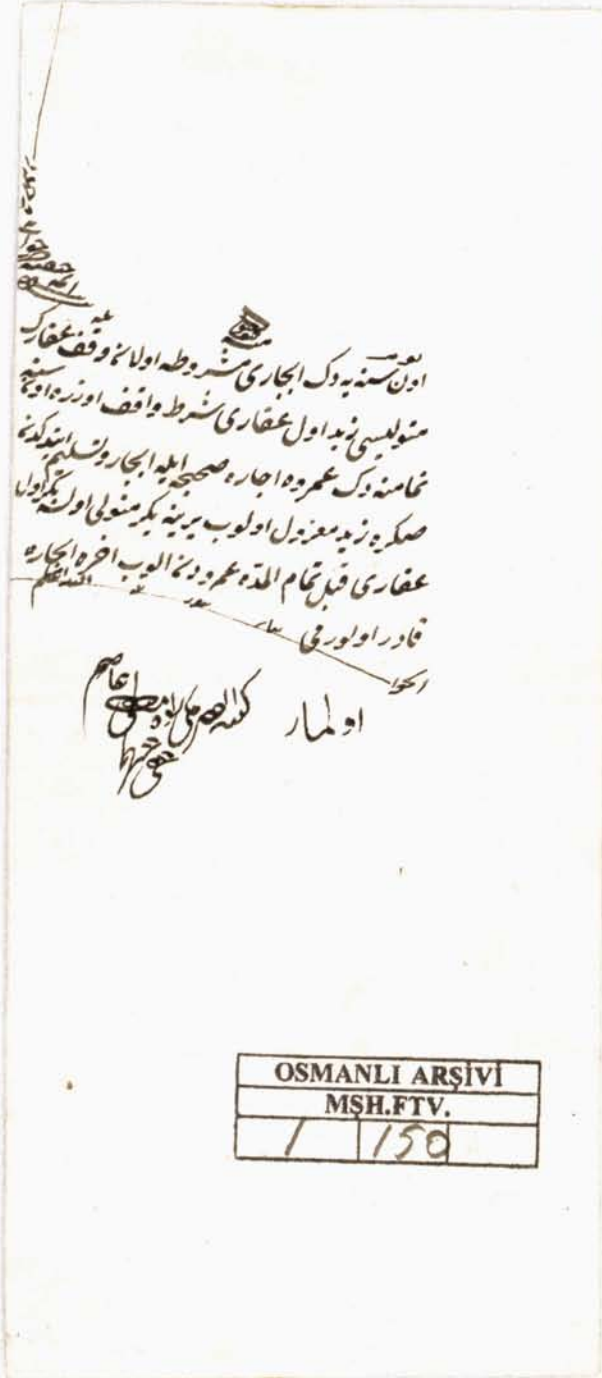 اون سنه يه دك ايجارى مشروطه اولان وقف عقارك
متوليسى زيد اول عقارى شرط واقف اوزره اون سنه
تمامنه دك عمروه اجاره صحيحه ايله ايجار و تسليم ايتدكدن
صكره زيد معزول اولوب يرينه بكر متولى اولسه بكر اول
عقارى قبل تمام المده عمرودن الوب اخره ايجاره
قادر اولورمى
الجواب
الله اعلم
اولماز
كتبه
OSMANLI ARŞİVİ
MŞH.FTV.
1 150